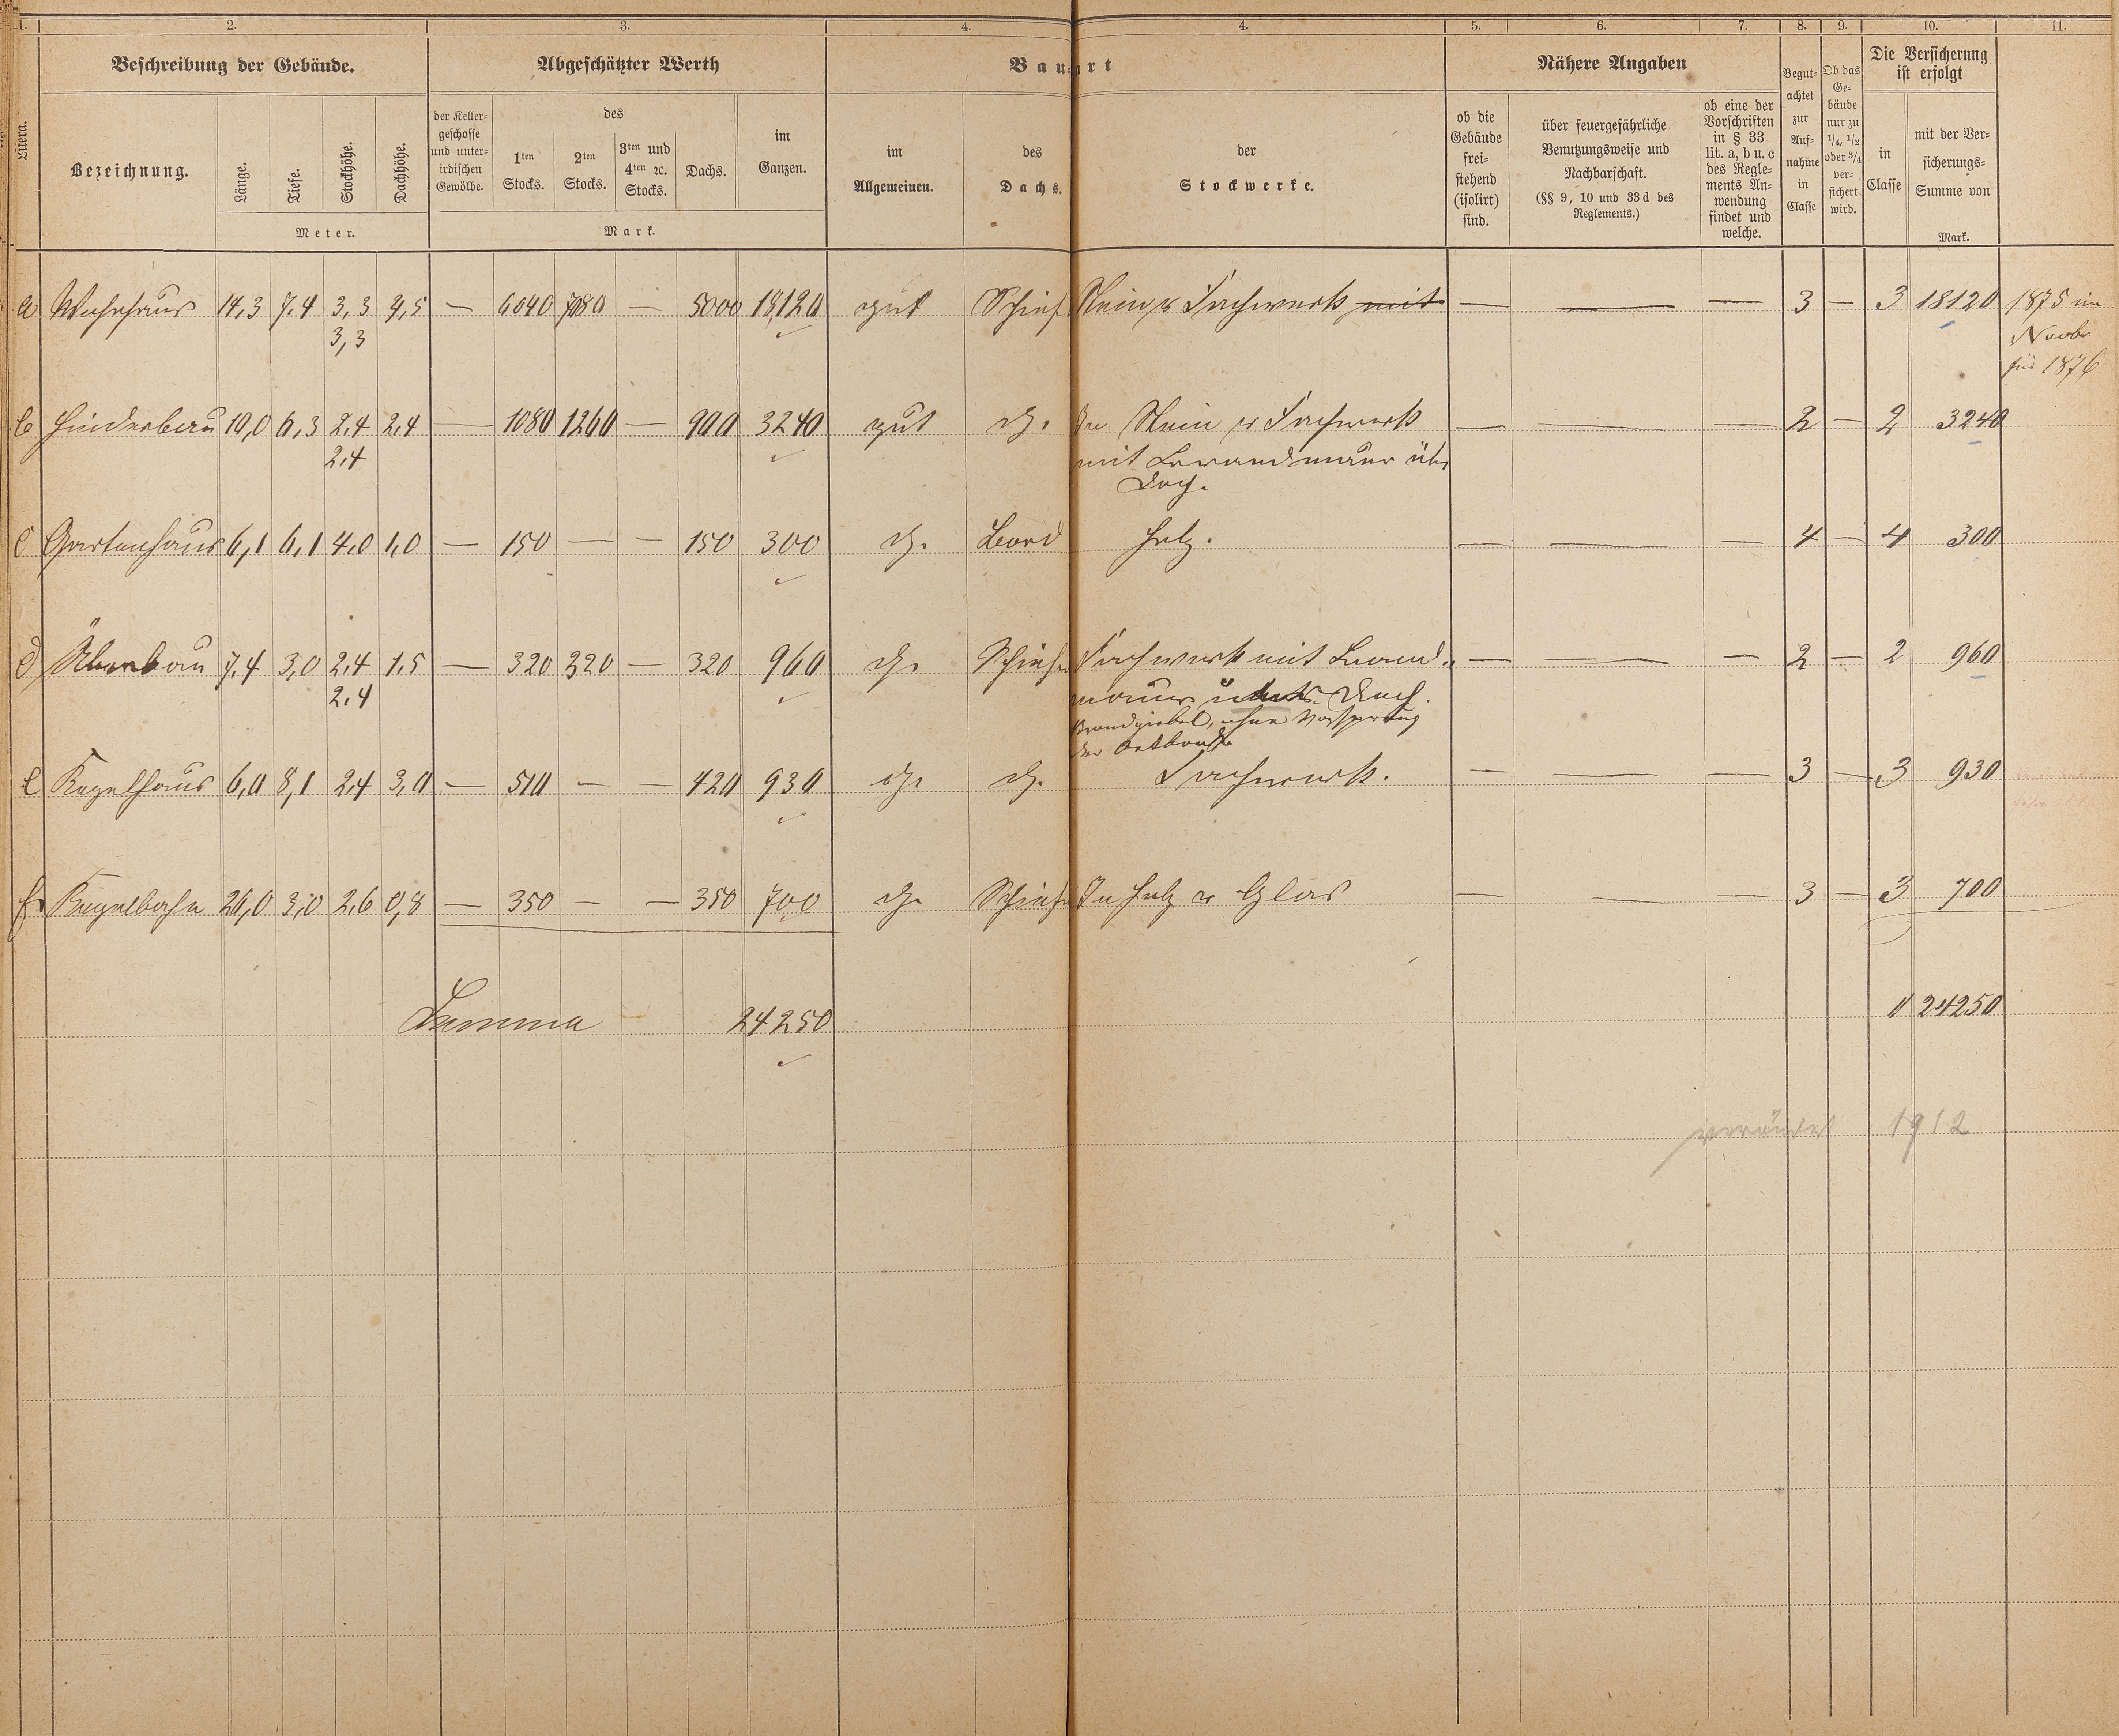 1. 2. 3. 4. 4. 5. 6. 7. 8. 9. 10. 11.
Beschreibung der Gebäude. Abgeschätzter Werth Bauart Nähere Angaben Begutachtet zur Aufnahme in Classe Ob das Gebäude nur zu 1/4, 1/2 oder 3/4 versichert wird. Die Versicherung ist erfolgt
Litera. Bezeichnung. Länge. Tiefe. Stockhöhe. Dachhöhe. der Kellergeschosse und unterirdischen Gewölbe. des 1ten Stocks. 2ten Stocks. 3ten und 4ten ꝛc. Stocks. Dachs. im Ganzen. im Allgemeinen. des Dachs. der Stockwerke. ob die Gebäude freistehend (isolirt) sind. über feuergefährliche Benutzungsweise und Nachbarschaft. (§§ 9, 10 und 33 d des Reglements.) ob eine der Vorschriften in § 33 lit. a, b u. c des Reglements Anwendung findet und welche. in Classe mit der Versicherungs-Summe von
Meter. Mark. Mark.
a Wohnhaus 14,3 7,4 3,3 4,5 — 6040 7080 — 5000 18120 gut Schief Stein u Fachwerk mit — — — 3 — 3 18120 1875 im
3,3 Novbr
für 1876
b Hinderbau 10,0 6,3 2,4 2,4 — 1080 1260 — 900 3240 gut do. In Stein u Fachwerk — — — 2 — 2 3240
2,4 mit Brandmauer übr
Dach.
c Gartenhaus 6,1 6,1 4,0 1,0 — 150 — — 150 300 do. Bord Holz. — — — 4 — 4 300
d Überbau 7,4 3,0 2,4 1,5 — 320 320 — 320 960 do. Schiefer Fachwerk mit Brand- — — — 2 — 2 960
2,4 mauer Dach.
Brandgiebel, ohne Vorsprung
der
e Kegelhaus 6,0 8,1 2,4 3,0 — 510 — — 420 930 do. do. Fachwerk. — — — 3 — 3 930
f Kegelbahn 26,0 3,0 2,6 0,8 — 350 — — 350 700 do. Schiefer In Holz u Glas — — — 3 — 3 700
Summa 24250 24250
verändert 1912